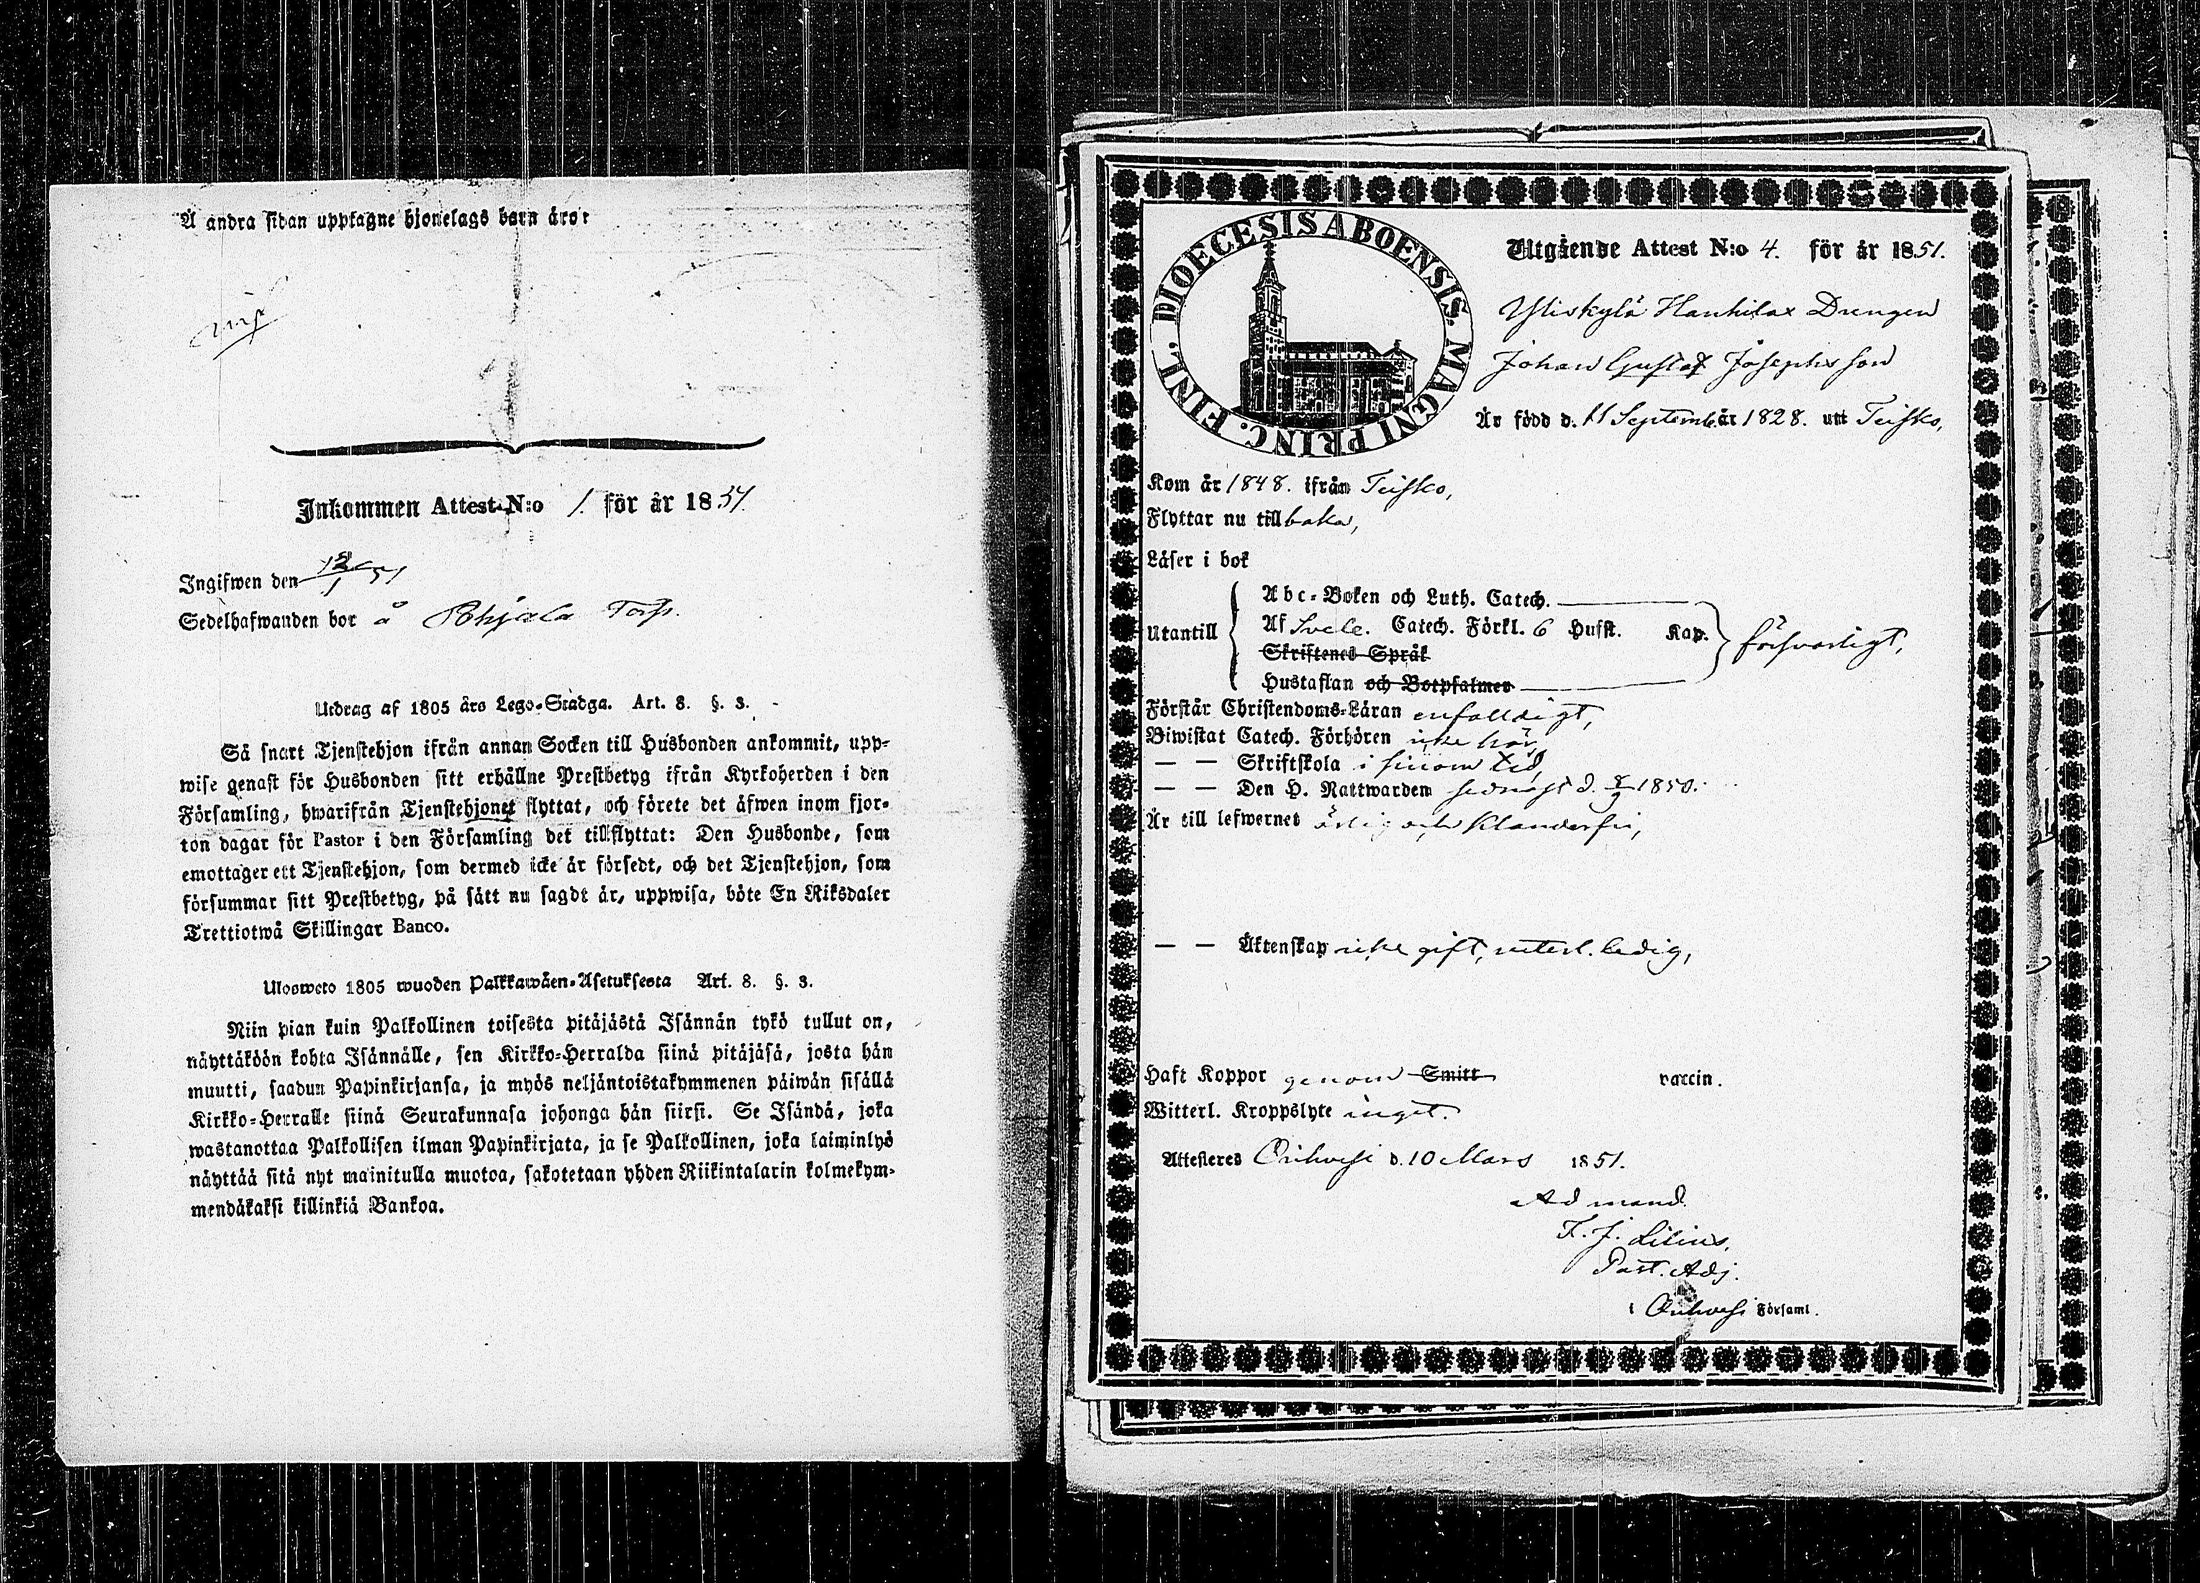 Å andra sidan upptagne hjonelags barn äro:
Inkommen Attest N:o 1. för år 1851.
Ingifwen den 12/1 51
Sedelhafwanden bor å Pohjala Torp.
Utdrag af 1805 års Lego-Stadga. Art. 8. §. 3.
Så snart Tjenstehjon ifrån annan Socken till Husbonden ankommit, upp-
wise genast för Husbonden sitt erhållne Prestbetyg ifrån Kyrkoherden i den
Församling, hwarifrån Tjenstehjonet flyttat, och förete det äfwen inom fjor-
ton dagar för Pastor i den Församling det tillflyttat: Den Husbonde, som
emottager ett Tjenstehjon, som dermed icke är försedt, och det Tjenstehjon, som
försummar sitt Prestbetyg, på sätt nu sagdt är, uppwisa, böte En Riksdaler
Trettiotwå Skillingar Banco.
Ulosweto 1805 wuoden Palkkawäen-Asetuksesta Art. 8. §. 3.
Niin pian kuin Palkollinen toisesta pitäjästä Isännän tykö tullut on,
näyttäköön kohta Isännälle, sen Kirkko-Herralda siinä pitäjäsä, josta hän
muutti, saadun Papinkirjansa, ja myös neljäntoistakymmenen päiwän sisällä
Kirkko-Herralle siinä Seurakunnasa johonga hän siirsi. Se Isändä, joka
wastanottaa Palkollisen ilman Papinkirjata, ja se Palkollinen, joka laiminlyö
näyttää sitä nyt mainitulla muotoa, sakotetaan yhden Riikintalarin kolmekym-
mendäkaksi killinkiä Bankoa.
DIOECESIS ABOENSIS. MAGNI PRINC. FINL.
Utgående Attest N:o 4. för år 1851.
Yliskylä Hanhilax Drengen
Johan Gustaf Josephsson
Är född d. 11 Septemb. år 1828. uti Teisko,
Kom år 1848. ifrån Teisko,
Flyttar nu tillbaka,
Läser i bok
Abc-Boken och Luth. Catech.
Utantill Af Svele. Catech. Förkl. 6 Hufst. Kap. försvarligt,
Skriftenes Språk
Hustaflan och Botpsalmer
Förstår Christendoms-Läran enfalldigt,
Biwistat Catech. Förhören icke här,
— — Skriftskola i sinom tid
— — Den H. Nattwarden sednast d. 1850.
Är till lefwernet ärlig och klanderfri,
— — Äktenskap icke gift, veterl. ledig,
Haft Koppor genom Smitt vaccin.
Witterl. Kroppslyte inget.
Attesteres Orihvesi d. 10 Mars 1851.
Ad mand.
F. J. Lilius,
Past. Adj.
i Orihvesi Församl.